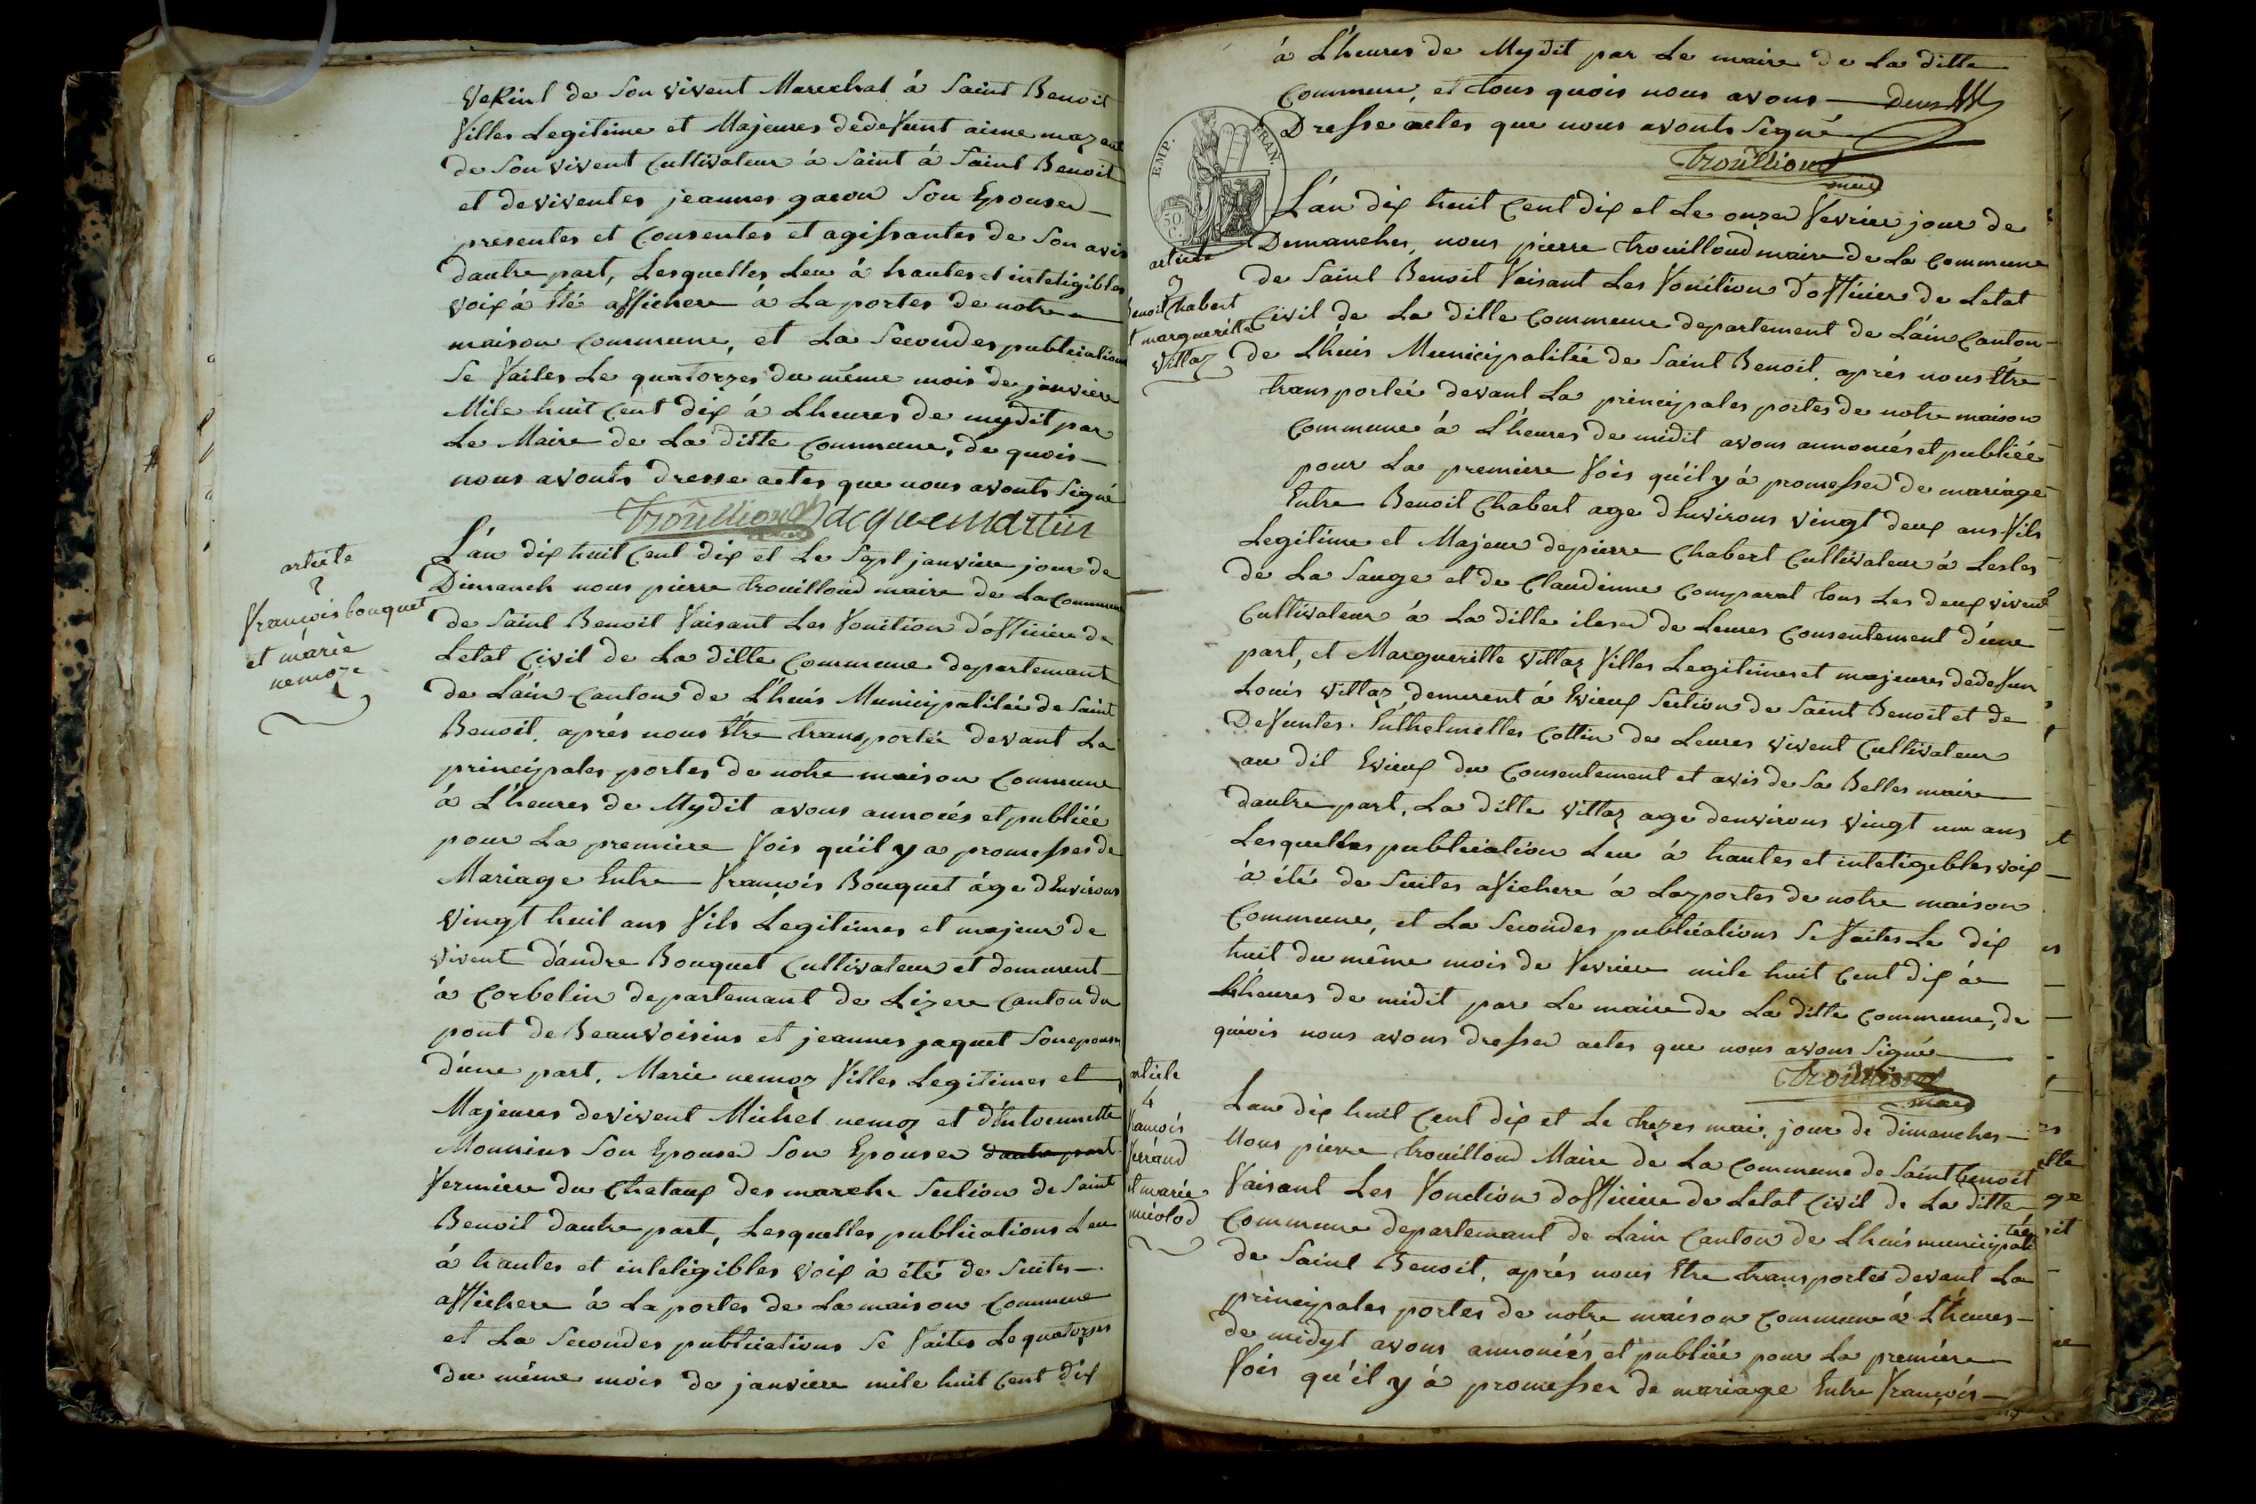 de Son vivent Marechal à Saint Benoit
Villes Legitime et Majeures dedeVunt aime mazaud
de Son vivent Cultivateur à Saint à Saint Benoit
et deviventes jeannes garou Son Epouser
presentes et Consentes et agissantes de Son avis
dautre part, Lesquelles Leu à hautes et inteligibles
voix à Eté affichere à La portes de notre
maison Commune, et La Secondes publications
Se Vaites Le quatorzes du même mois de janviere
Mile huit Cent dix à Lheures de mydit par
Le Maire de La ditte Commune, de quois
nous avonts dresse actes que nous avonts Signé
Trouilloud jacquemartin
article
2
François bouquet
et marie
nemoz
L'an dix huit Cent dix et Le Sept janviere jour de
Dimanch nous pierre trouilloud maire de La Commune
de Saint Benoit Vaisant Les Vonition d'officiere de
Letat Civil de La ditte Commune departemant
de L'ain Canton de L'huis Municipalitée de Saint
Benoit, aprés nous Etre transportée devant La
principales portes de notre maison Commune
à L'heures de Mydit avons annocés et publiée
pour La premiere Vois qu'il y a promesses de
Mariage Entre François Bouquet âge d'Environs
Vingt huit ans Vils Legitimes et majeur de
vivent d'andre Bouquet Cultivateur et demurent
à Corbelin departemant de Lizere Canton du
pont de Beauvoisins et jeannes jaquet Son epouser
d'une part, Marie nemoz Villes Legitimes et
Majeures devivent Michel nemoz et d'Entoennette
Monnins Son Epouser Son Epouser dautre part
Vermiere du Chataux des marche Section de Saint
Benoit dautre part, Lesquelles publications Leu
à hautes et inteligibles voix à été de Suites
affichere à La portes de La maison Commune
et La Secondes publications Se Vaites Le quatorzes
du même mois de janviere mile huit Cent dix
à L'heures de Mydit par Le maire de La ditte
Commune, et tous quois nous avons
Dresse actes que nous avonts Signé
Trouilloud
maire
EMP. FRAN.
50
C.
article
3
Benoit Chabert
et marguerite
Villaz
L'an dix huit Cent dix et Le onzer Vevrier jour de
Dimanches, nous pierre trouilloud maire de La Commune
de Saint Benoit Vaisant Les Vonition d'officier de Letat
Civil de La ditte Commune departement de L'ain Canton
de Lhuis Municipalitée de Saint Benoit, aprés nous Etre
transportée devant La principales portes de notre maison
Commune à L'heures de midit avons annoncés et publiée
pour La premiere Vois qu'il y à promesser de mariage
Entre Benoit Chabert age d'Environs vingt deux ans Vils
Legitime et Majeur de pierre Chabert Cultivateur à Lesles
de La Sauge et de Claudinne Comparat tous Les deux vivent
Cultivateur à La ditte ileser de Leures Consentement d'une
part, et Marguerille Villaz Villes Legitimes et majeures dedeVun
Louis Villaz, demurent à Evieux Section de Saint Benoit et de
DeVuntes Cottin de Leures vivent Cultivateur
au dit Evieux du Consentement et avis de Sa Belles maire
dautre part, La ditte Villaz age denvirons vingt un ans
Lesquelles publication Leu à hautes et inteligebles voix
à été de Suites aVichere à La portes de notre maison
Commune, et La Secondes publications Se Vaites Le dix
huit du même mois de Vevrier mile huit Cent dix à
Lheures de midit par Le maire de La ditte Commune, de
quiois nous avons dresser actes que nous avons Signé
Trouilloud
maire
article
4
François
et marie
Lan dix huit Cent dix et Le trezes mai, jour de dimanches
Nous pierre trouilloud Maire de La Commune de Saint Benoit
Vaisant Les Vonction d'officiere de Letat Civil de La ditte
Commune departemant de Lain Canton de Lhuis municipalitée
de Saint Benoit, aprés nous Etre transportée devant La
principales portes de notre maison Commune à L'heures
de midyt avons annoncés et publiée pour La première
Vois qu'il y à promesser de mariage Entre François